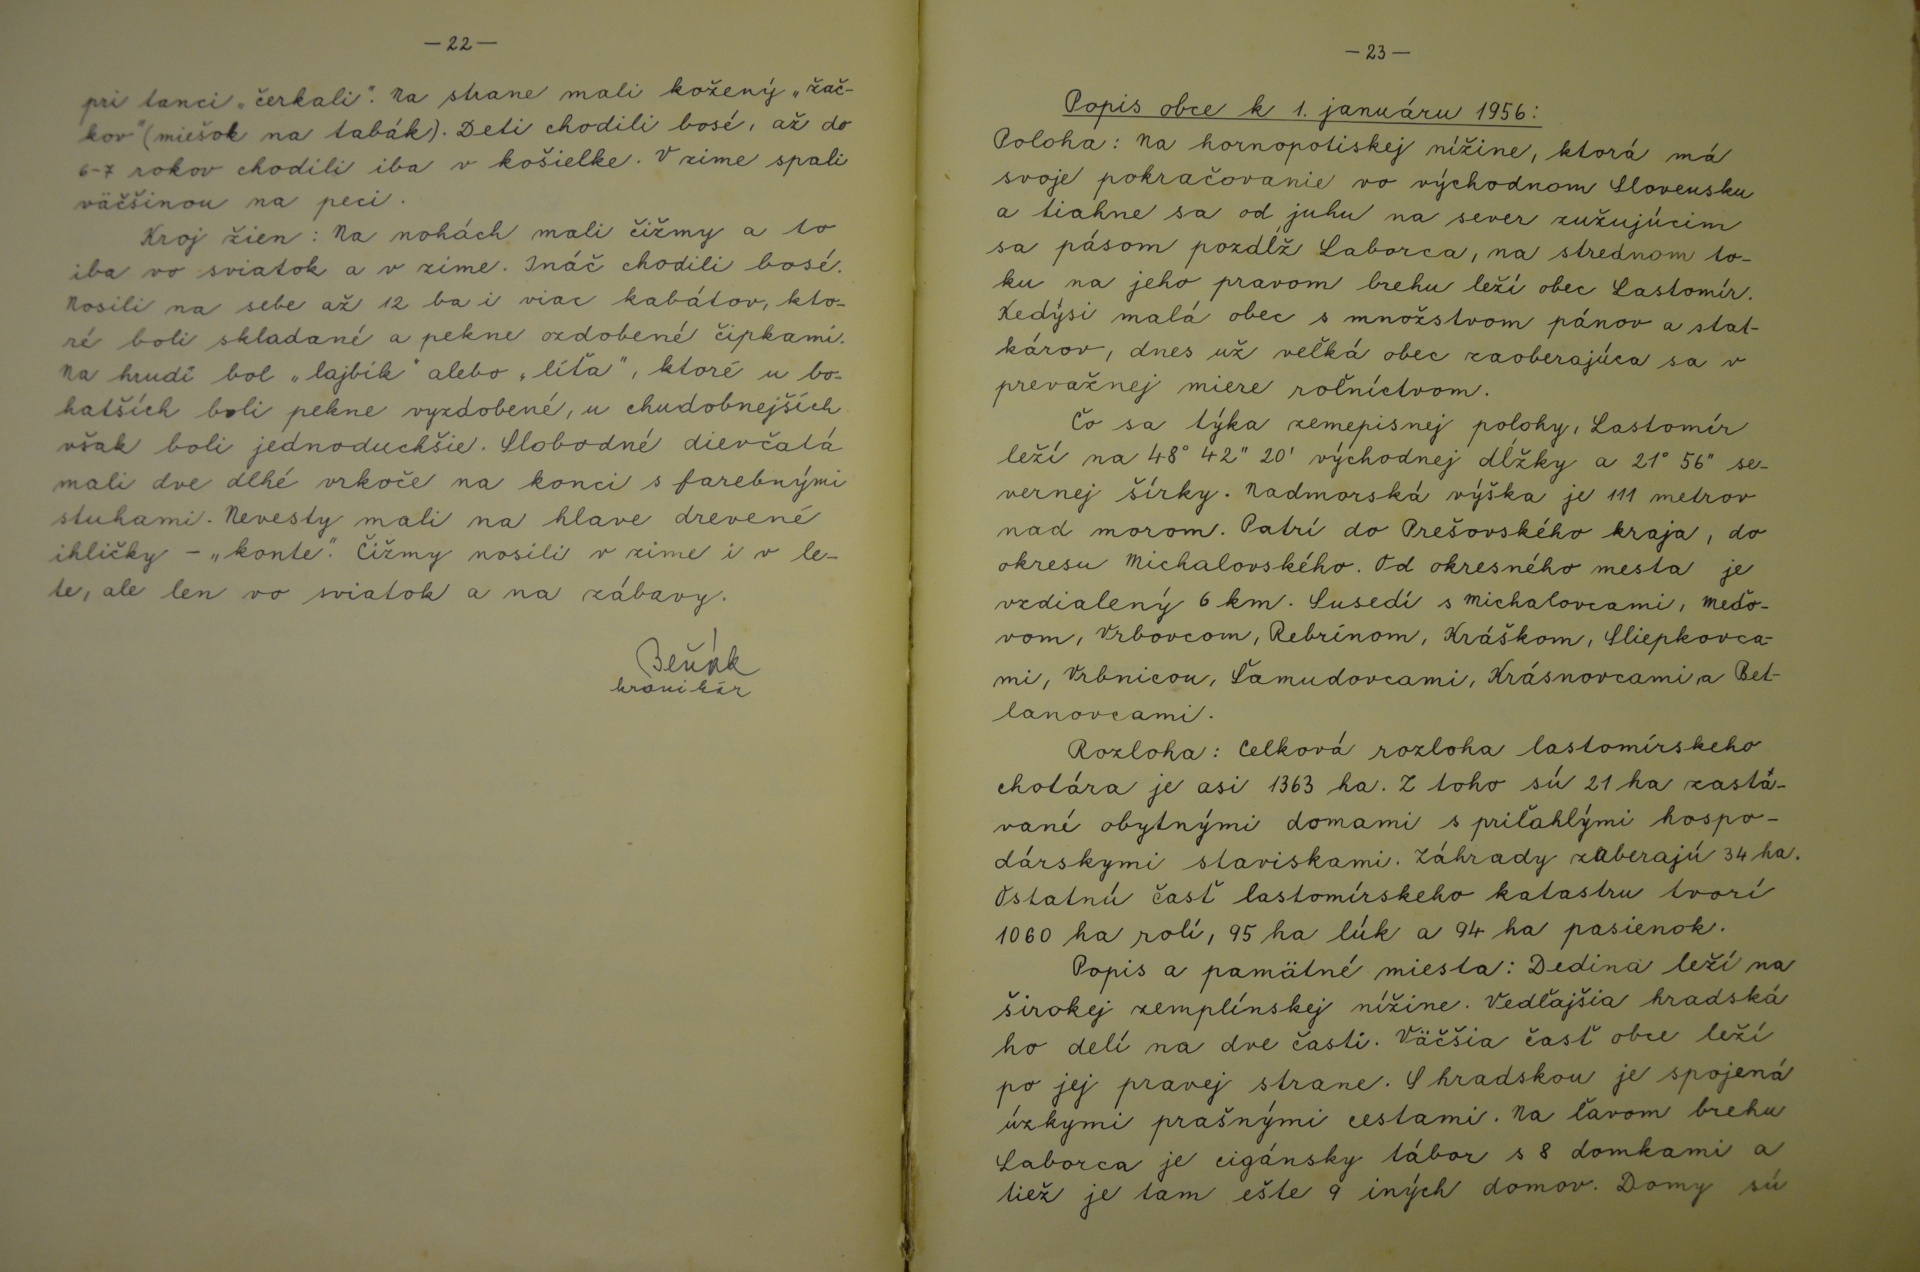 — 22 —
pri tanci „čerkali". Na strane mali kožený „žač-
kov" (miešok na tabák). Deti chodili bosé, až do
6-7 rokov chodili iba v košielke. V zime spali
väčšinou na peci.
Kroj žien: Na nohách mali čižmy a to
iba vo sviatok a v zime. Ináč chodili bosé.
Nosili na sebe až 12 ba i viac kabátov, kto-
ré boli skladané a pekne ozdobené čipkami.
Na hrudi bol „lajbik" alebo „líťa", ktoré u bo-
hatších boli pekne vyzdobené, u chudobnejších
však boli jednoduchšie. Slobodné dievčatá
mali dve dlhé vrkoče na konci s farebnými
stuhami. Nevesty mali na hlave drevené
ihličky – „konte". Čižmy nosili v zime i v le-
te, ale len vo sviatok a na zábavy.
Beňák
kronikár
— 23 —
Popis obce k 1. januáru 1956:
Poloha: Na hornopotiskej nížine, ktorá má
svoje pokračovanie vo východnom Slovensku
a tiahne sa od juhu na sever zužujúcim
sa pásom pozdĺž Laborca, na strednom to-
ku na jeho pravom brehu leží obec Lastomír.
Kedýsi malá obec s množstvom pánov a stat-
károv, dnes už veľká obec zaoberajúca sa v
prevažnej miere roľníctvom.
Čo sa týka zemepisnej polohy, Lastomír
leží na 48° 42" 20' východnej dĺžky a 21° 56" se-
vernej šírky. Nadmorská výška je 111 metrov
nad morom. Patrí do Prešovského kraja, do
okresu Michalovského. Od okresného mesta je
vzdialený 6 km. Susedí s Michalovcami, Meďo-
vom, Vrbovcom, Rebrínom, Kráškom, Sliepkovca-
mi, Vrbnicou, Ľamudovcami, Krásnovcami a Bet-
lanovcami.
Rozloha: Celková rozloha lastomírskeho
chotára je asi 1363 ha. Z toho sú 21 ha zastá-
vané obytnými domami s priľahlými hospo-
dárskymi staviskami. Záhrady zaberajú 34 ha.
Ostatnú časť lastomírskeho katastru tvorí
1060 ha rolí, 95 ha lúk a 94 ha pasienok.
Popis a pamätné miesta: Dedina leží na
širokej zemplínskej nížine. Vedľajšia hradská
ho delí na dve časti. Väčšia časť obce leží
po jej pravej strane. S hradskou je spojená
úzkymi prašnými cestami. Na ľavom brehu
Laborca je cigánsky tábor s 8 domkami a
tiež je tam ešte 9 iných domov. Domy sú